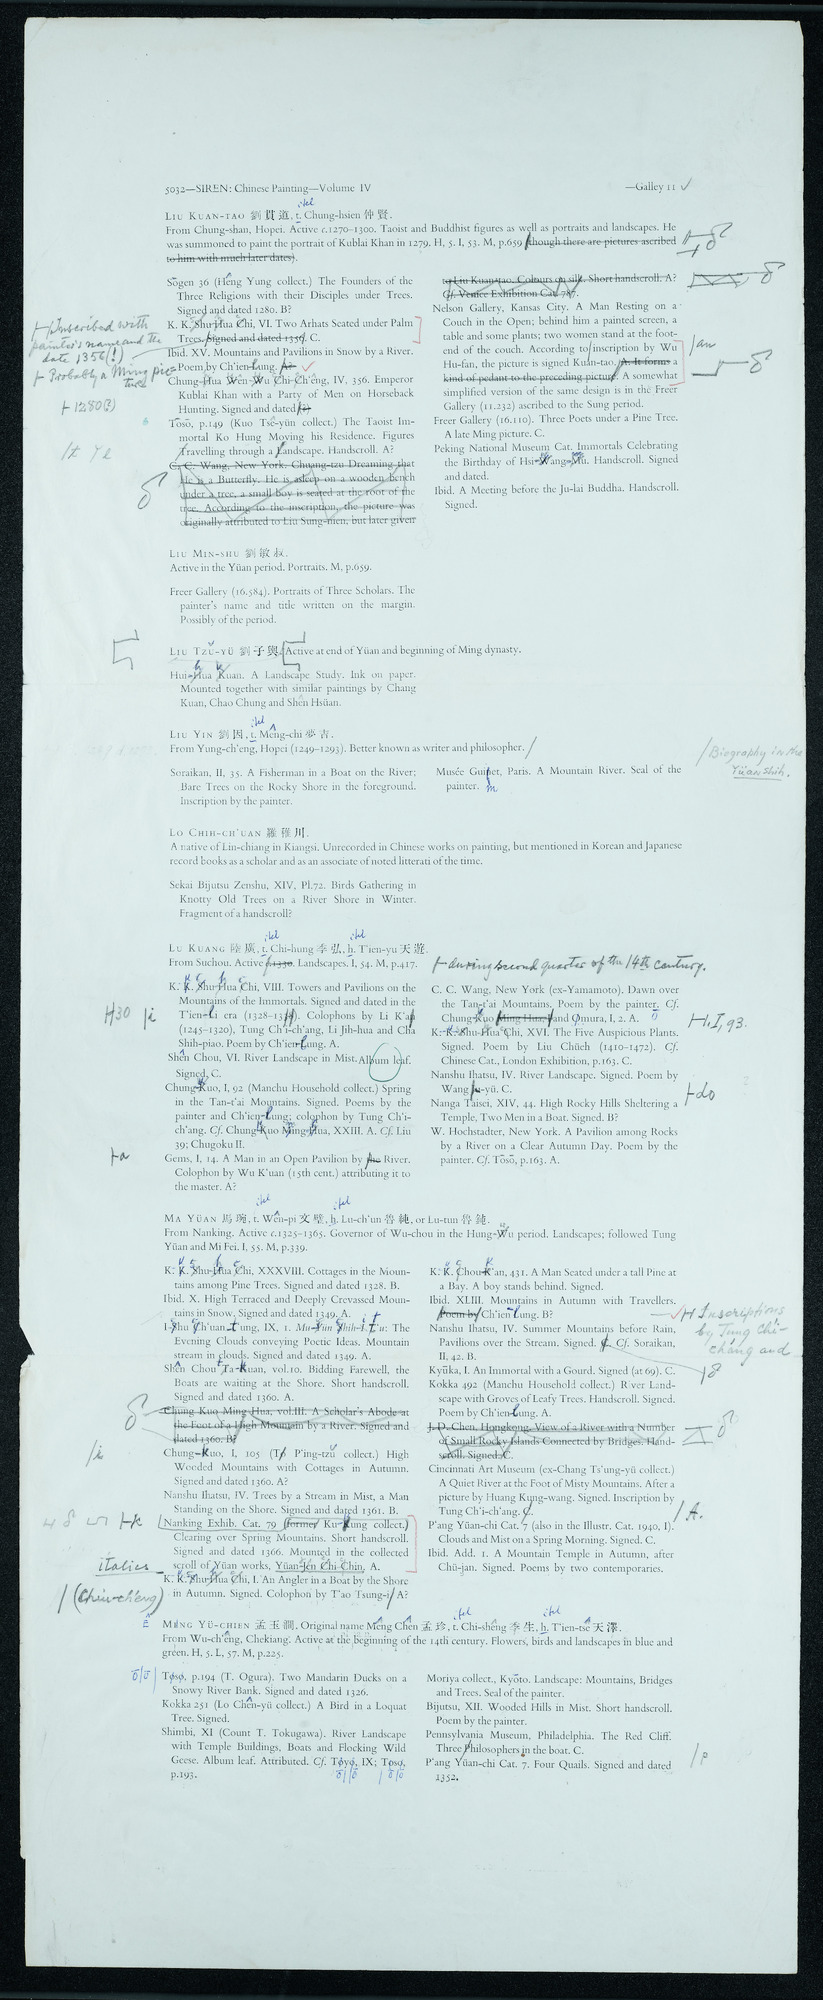 5032—SIREN: Chinese Painting—Volume IV
—Galley 11 ✓
ital
LIU KUAN-TAO 劉貫道, t. Chung-hsien 仲賢.
From Chung-shan, Hopei. Active c.1270–1300. Taoist and Buddhist figures as well as portraits and landscapes. He
was summoned to paint the portrait of Kublai Khan in 1279. H, 5. I, 53. M, p.659 (though there are pictures ascribed
to him with much later dates).
Sōgen 36 (Hêng Yung collect.) The Founders of the
Three Religions with their Disciples under Trees.
Signed and dated 1280. B?
K. K. Shu Hua Chi, VI. Two Arhats Seated under Palm
Trees. Signed and dated 1356. C.
Ibid. XV. Mountains and Pavilions in Snow by a River.
Poem by Ch'ien-lung. A?
Chung-Hua Wên-Wu Chi-Ch'êng, IV, 356. Emperor
Kublai Khan with a Party of Men on Horseback
Hunting. Signed and dated (?)
Tōsō, p.149 (Kuo Tsê-yün collect.) The Taoist Im-
mortal Ko Hung Moving his Residence. Figures
Travelling through a Landscape. Handscroll. A?
C. C. Wang, New York. Chuang-tzu Dreaming that
He is a Butterfly. He is asleep on a wooden bench
under a tree, a small boy is seated at the root of the
tree. According to the inscription, the picture was
originally attributed to Liu Sung-nien, but later given
Inscribed with
painter's name and the
date 1356 (!)
Probably a Ming pic-
ture
1280(?)
lt
to Liu Kuan-tao. Colours on silk. Short handscroll. A?
Cf. Venice Exhibition Cat. 787.
Nelson Gallery, Kansas City. A Man Resting on a
Couch in the Open; behind him a painted screen, a
table and some plants; two women stand at the foot-
end of the couch. According to inscription by Wu
Hu-fan, the picture is signed Kuan-tao. A. It forms a
kind of pedant to the preceding picture. A somewhat
simplified version of the same design is in the Freer
Gallery (11.232) ascribed to the Sung period.
Freer Gallery (16.110). Three Poets under a Pine Tree.
A late Ming picture. C.
Peking National Museum Cat. Immortals Celebrating
the Birthday of Hsi-Wang-Mu. Handscroll. Signed
and dated.
Ibid. A Meeting before the Ju-lai Buddha. Handscroll.
Signed.
an
LIU MIN-SHU 劉敏叔.
Active in the Yüan period. Portraits. M, p.659.
Freer Gallery (16.584). Portraits of Three Scholars. The
painter's name and title written on the margin.
Possibly of the period.
LIU TZŬ-YÜ 劉子輿. Active at end of Yüan and beginning of Ming dynasty.
Hui-Hua Kuan. A Landscape Study. Ink on paper.
Mounted together with similar paintings by Chang
Kuan, Chao Chung and Shên Hsüan.
ital
LIU YIN 劉因, t. Mêng-chi 夢吉.
From Yung-ch'êng, Hopei (1249–1293). Better known as writer and philosopher.
Biography in the
Yüan Shih.
Soraikan, II, 35. A Fisherman in a Boat on the River;
Bare Trees on the Rocky Shore in the foreground.
Inscription by the painter.
Musée Guinet, Paris. A Mountain River. Seal of the
painter.
m
LO CHIH-CH'UAN 羅稚川.
A native of Lin-chiang in Kiangsi. Unrecorded in Chinese works on painting, but mentioned in Korean and Japanese
record books as a scholar and as an associate of noted litterati of the time.
Sekai Bijutsu Zenshu, XIV, Pl.72. Birds Gathering in
Knotty Old Trees on a River Shore in Winter.
Fragment of a handscroll?
ital ital
LU KUANG 陸廣, t. Chi-hung 季弘, h. T'ien-yu 天遊.
From Suchou. Active c.1330. Landscapes. I, 54. M, p.417.
during second quarter of the 14th century.
K. K. Shu Hua Chi, VIII. Towers and Pavilions on the
Mountains of the Immortals. Signed and dated in the
T'ien-li era (1328–1311). Colophons by Li K'ap
(1245–1320), Tung Ch'i-ch'ang, Li Jih-hua and Cha
Shih-piao. Poem by Ch'ien-Lung. A.
Shên Chou, VI. River Landscape in Mist. Album leaf.
Signed, C.
Chung-Kuo, I, 92 (Manchu Household collect.) Spring
in the Tan-t'ai Mountains. Signed. Poems by the
painter and Ch'ien-Lung; colophon by Tung Ch'i-
ch'ang. Cf. Chung-Kuo Ming-Hua, XXIII. A. Cf. Liu
39; Chugoku II.
Gems, I, 14. A Man in an Open Pavilion by the River.
Colophon by Wu K'uan (15th cent.) attributing it to
the master. A?
H30 i
a
C. C. Wang, New York (ex-Yamamoto). Dawn over
the Tan-t'ai Mountains. Poem by the painter. Cf.
Chung-Kuo Ming Hua, and Omura, I, 2. A.
K. K. Shu-Hua Chi, XVI. The Five Auspicious Plants.
Signed. Poem by Liu Chüeh (1410–1472). Cf.
Chinese Cat., London Exhibition, p.163. C.
Nanshu Ihatsu, IV. River Landscape. Signed. Poem by
Wang Ju-yü. C.
Nanga Taisei, XIV, 44. High Rocky Hills Sheltering a
Temple, Two Men in a Boat. Signed. B?
W. Hochstadter, New York. A Pavilion among Rocks
by a River on a Clear Autumn Day. Poem by the
painter. Cf. Tōsō, p.163. A.
I, 93.
do
ital ital
MA YÜAN 馬琬, t. Wên-pi 文璧, h. Lu-ch'un 魯純, or Lu-tun 魯鈍.
From Nanking. Active c.1325–1365. Governor of Wu-chou in the Hung-Wu period. Landscapes; followed Tung
Yüan and Mi Fei. I, 55. M, p.339.
K. K. Shu-Hua Chi, XXXVIII. Cottages in the Moun-
tains among Pine Trees. Signed and dated 1328. B.
Ibid. X. High Terraced and Deeply Crevassed Moun-
tains in Snow, Signed and dated 1349. A.
I-Shu Ch'uan-Tung, IX, 1. Mu-Yün Shih-I T'u: The
Evening Clouds conveying Poetic Ideas. Mountain
stream in clouds. Signed and dated 1349. A.
Shên Chou Ta-Kuan, vol.10. Bidding Farewell, the
Boats are waiting at the Shore. Short handscroll.
Signed and dated 1360. A.
Chung Kuo Ming Hua, vol.III. A Scholar's Abode at
the Foot of a High Mountain by a River. Signed and
dated 1360. B?
Chung-Kuo, I, 105 (Ti P'ing-tzŭ collect.) High
Wooded Mountains with Cottages in Autumn.
Signed and dated 1360. A?
Nanshu Ihatsu, IV. Trees by a Stream in Mist, a Man
Standing on the Shore. Signed and dated 1361. B.
Nanking Exhib. Cat. 79 (former Ku-Kung collect.)
Clearing over Spring Mountains. Short handscroll.
Signed and dated 1366. Mounted in the collected
scroll of Yüan works, Yüan-Jên Chi-Chin, A.
K. K. Shu-Hua Chi, I. An Angler in a Boat by the Shore
in Autumn. Signed. Colophon by T'ao Tsung-i. A?
i
k
italics
(Chiu-ch'êng)
K. K. Chou-K'an, 431. A Man Seated under a tall Pine at
a Bay. A boy stands behind. Signed.
Ibid. XLIII. Mountains in Autumn with Travellers.
Poem by Ch'ien-Lung. B?
Nanshu Ihatsu, IV. Summer Mountains before Rain,
Pavilions over the Stream. Signed. C. Cf. Soraikan,
II, 42. B.
Kyūka, I. An Immortal with a Gourd. Signed (at 69). C.
Kokka 492 (Manchu Household collect.) River Land-
scape with Groves of Leafy Trees. Handscroll. Signed.
Poem by Ch'ien-Lung. A.
J. D. Chen, Hongkong. View of a River with a Number
of Small Rocky Islands Connected by Bridges. Hand-
scroll. Signed. C.
Cincinnati Art Museum (ex-Chang Ts'ung-yü collect.)
A Quiet River at the Foot of Misty Mountains. After a
picture by Huang Kung-wang. Signed. Inscription by
Tung Ch'i-ch'ang. C.
P'ang Yüan-chi Cat. 7 (also in the Illustr. Cat. 1940, I).
Clouds and Mist on a Spring Morning. Signed. C.
Ibid. Add. 1. A Mountain Temple in Autumn, after
Chü-jan. Signed. Poems by two contemporaries.
Inscriptions
by Tung Ch'i-
ch'ang and
A.
ital ital
MÊNG YÜ-CHIEN 孟玉澗. Original name Mêng Chên 孟珍, t. Chi-shêng 季生, h. T'ien-tsê 天澤.
From Wu-ch'êng, Chekiang. Active at the beginning of the 14th century. Flowers, birds and landscapes in blue and
green. H, 5. I, 57. M, p.225.
Tōsō, p.194 (T. Ogura). Two Mandarin Ducks on a
Snowy River Bank. Signed and dated 1326.
Kokka 251 (Lo Chên-yü collect.) A Bird in a Loquat
Tree. Signed.
Shimbi, XI (Count T. Tokugawa). River Landscape
with Temple Buildings, Boats and Flocking Wild
Geese. Album leaf. Attributed. Cf. Tōyō, IX; Tōsō,
p.193.
ō/ō/
ō/ō /ō/ō
Moriya collect., Kyōto. Landscape: Mountains, Bridges
and Trees. Seal of the painter.
Bijutsu, XII. Wooded Hills in Mist. Short handscroll.
Poem by the painter.
Pennsylvania Museum, Philadelphia. The Red Cliff.
Three Philosophers in the boat. C.
P'ang Yüan-chi Cat. 7. Four Quails. Signed and dated
1352.
/p